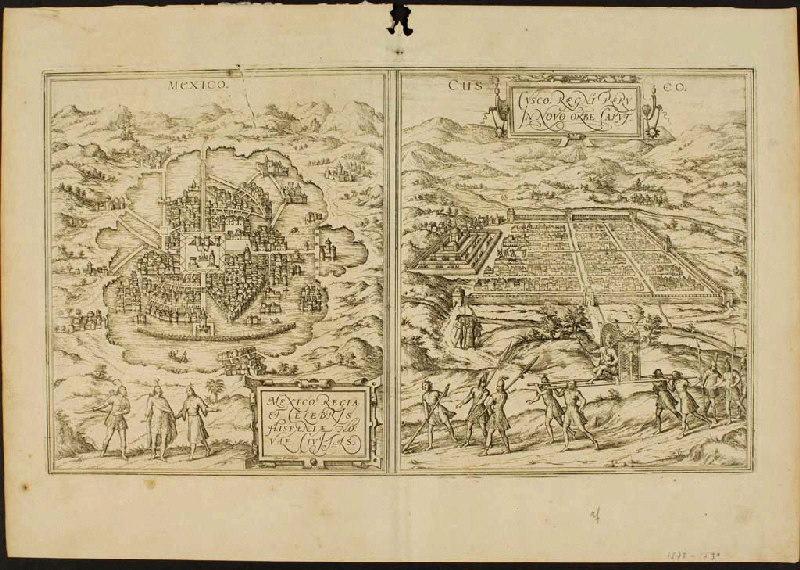 MEXICO.
MEXICO REGIA
ET CELEBRIS
HISPANIAE NO
VAE CIVITAS.
CUS CO.
CUSCO, REGNI PERU
IN NOVO ORBE CAPUT.